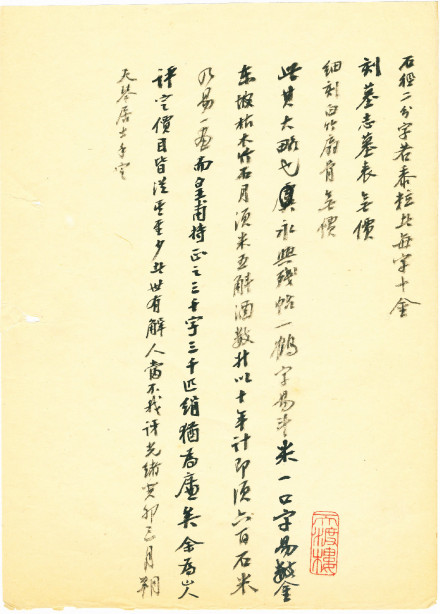 石徑二分字若黍粒此每字十金
刻墓志墓表無價
細刻白竹扇骨無價
此其大略也虞永興殘帖一鶴字易斗米一口字易數金
東坡枯木竹石月須米五斛酒數升以十年計即須六百石米
乃易一畫而皇甫持正之三千字三千匹絹猶為廉矣余為人
評定價目皆從其至少者世有解人當不我訝光緒癸卯三月朔
天琴居士手定